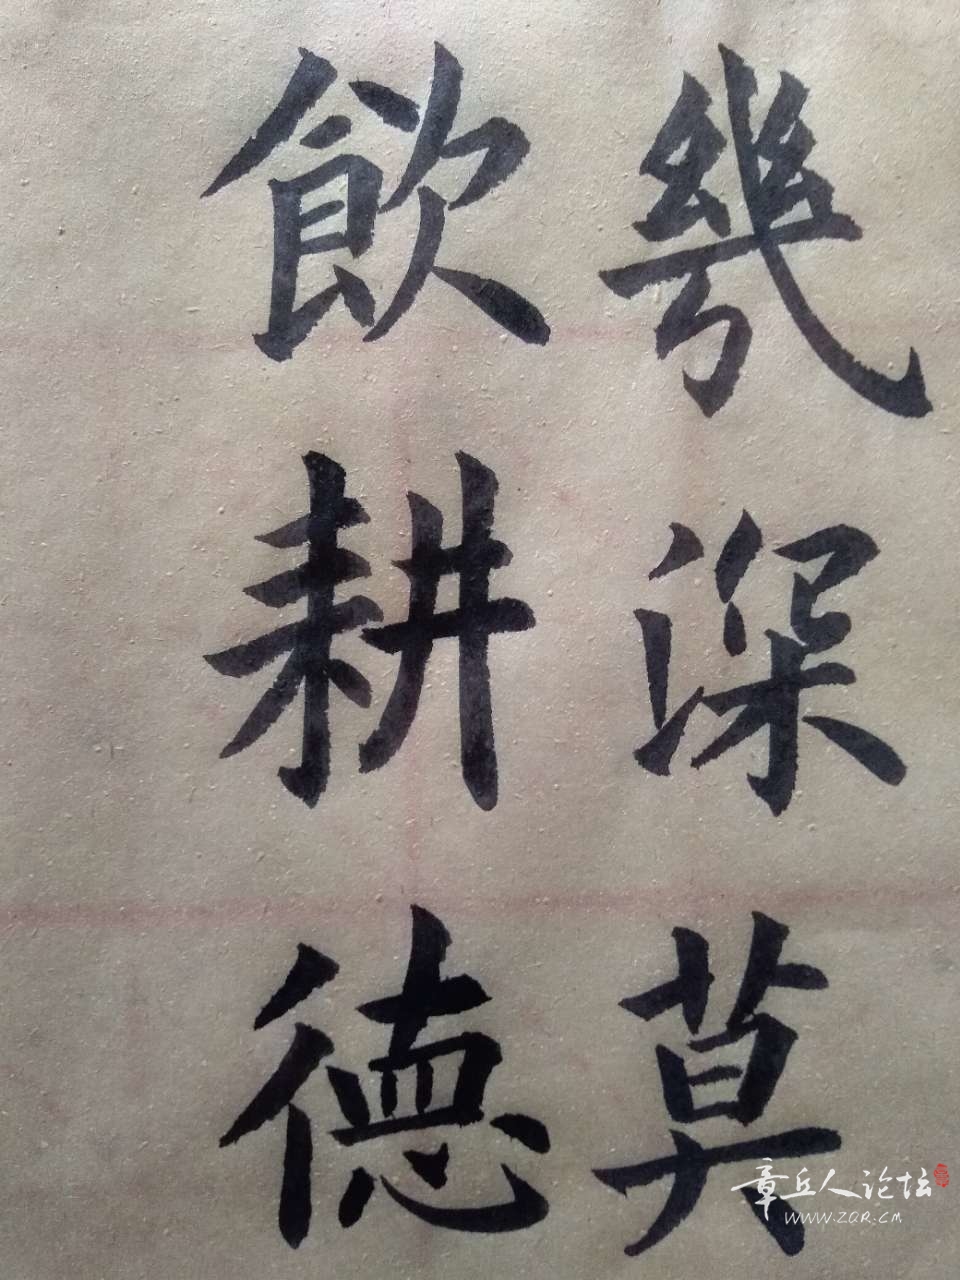 幾深莫
飲耕德
章丘人论坛
WWW.ZQR.CM